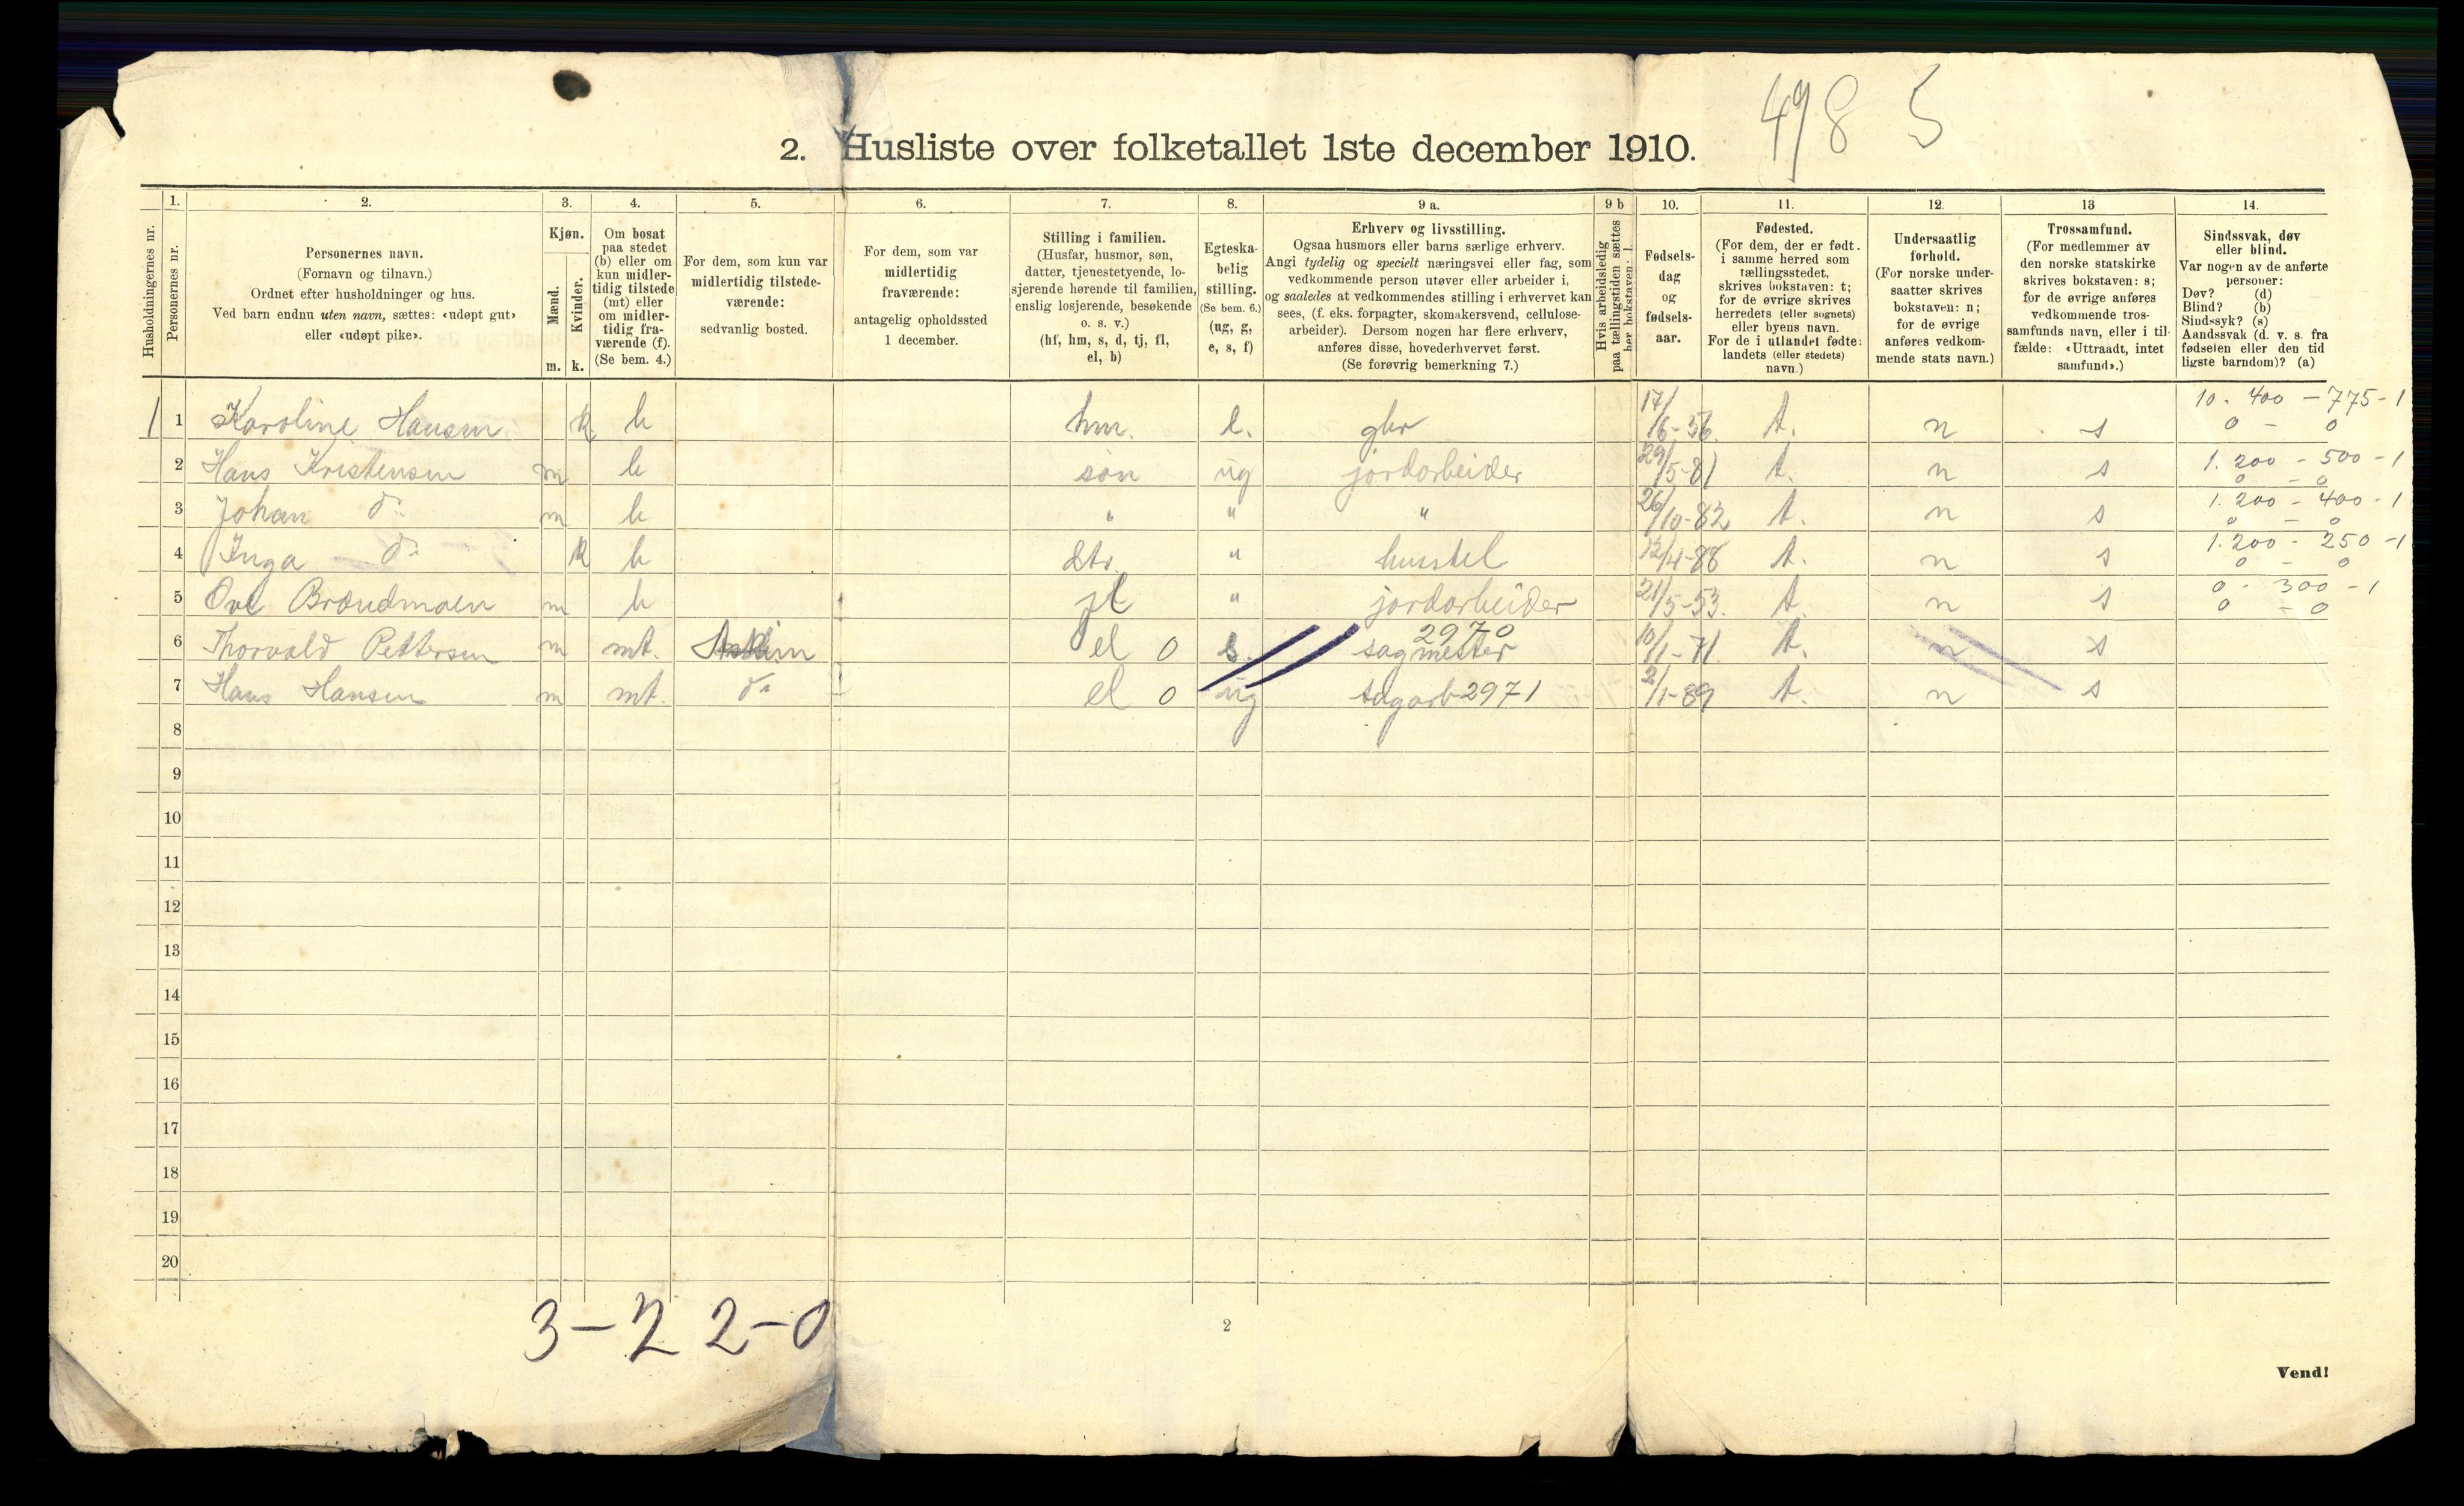 498 5
2. Husliste over folketallet 1ste december 1910.
1. 2. 3. 4. 5. 6. 7. 8. 9 a. 9 b 10. 11. 12. 13 14.
Husholdningernes nr.
Personernes nr.
Personernes navn.
(Fornavn og tilnavn.)
Ordnet efter husholdninger og hus.
Ved barn endnu uten navn, sættes: «udøpt gut»
eller «udøpt pike».
Kjøn.
Mænd.
Kvinder.
m. k.
Om bosat
paa stedet
(b) eller om
kun midler-
tidig tilstede
(mt) eller
om midler-
tidig fra-
værende (f).
(Se bem. 4.)
For dem, som kun var
midlertidig tilstede-
værende:
sedvanlig bosted.
For dem, som var
midlertidig
fraværende:
antagelig opholdssted
1 december.
Stilling i familien.
(Husfar, husmor, søn,
datter, tjenestetyende, lo-
sjerende hørende til familien,
enslig losjerende, besøkende
o. s. v.)
(hf, hm, s, d, tj, fl,
el, b)
Egteska-
belig
stilling.
(Se bem. 6.)
(ug, g,
e, s, f)
Erhverv og livsstilling.
Ogsaa husmors eller barns særlige erhverv.
Angi tydelig og specielt næringsvei eller fag, som
vedkommende person utøver eller arbeider i,
og saaledes at vedkommendes stilling i erhvervet kan
sees, (f. eks. forpagter, skomakersvend, cellulose-
arbeider). Dersom nogen har flere erhverv,
anføres disse, hovederhvervet først.
(Se forøvrig bemerkning 7.)
Hvis arbeidsledig
paa tællingstiden sættes
her bokstaven: l.
Fødsels-
dag
og
fødsels-
aar.
Fødested.
(For dem, der er født
i samme herred som
tællingsstedet,
skrives bokstaven: t;
for de øvrige skrives
herredets (eller sognets)
eller byens navn.
For de i utlandet fødte:
landets (eller stedets)
navn.)
Undersaatlig
forhold.
(For norske under-
saatter skrives
bokstaven: n;
for de øvrige
anføres vedkom-
mende stats navn.)
Trossamfund.
(For medlemmer av
den norske statskirke
skrives bokstaven: s;
for de øvrige anføres
vedkommende tros-
samfunds navn, eller i til-
fælde: «Uttraadt, intet
samfund».)
Sindssvak, døv
eller blind.
Var nogen av de anførte
personer:
Døv? (d)
Blind? (b)
Sindssyk? (s)
Aandssvak (d. v. s. fra
fødselen eller den tid
ligste barndom)? (a)
1 1 Karoline Hansen k b hm. e. gbr 17/6-56. t. n s 10. 400 - 775 - 1
0 - 0
2 Hans Kristensen m b søn ug jordarbeider 29/5-81 t. n s 1. 200 - 500 - 1
0 - 0
3 Johan do m b " " " 26/10-82 t. n s 1. 200 - 400 - 1
0 - 0
4 Inga do k b dtr. " husstel 12/4-88 t. n s 1. 200 - 250 - 1
0 - 0
5 Ove Brændmoen m b fl " jordarbeider 21/5-53. t. n s 0 - 300 - 1
0 - 0
2970
6 Thorvald Pettersen m mt. el 0 s. sagmester 10/1-71. t. n s
7 Hans Hansen m mt. do el 0 ug sagarb 2971 2/1-89 t. n s
8
9
10
11
12
13
14
15
16
17
18
19
20
3-2 2-0
2
Vend!